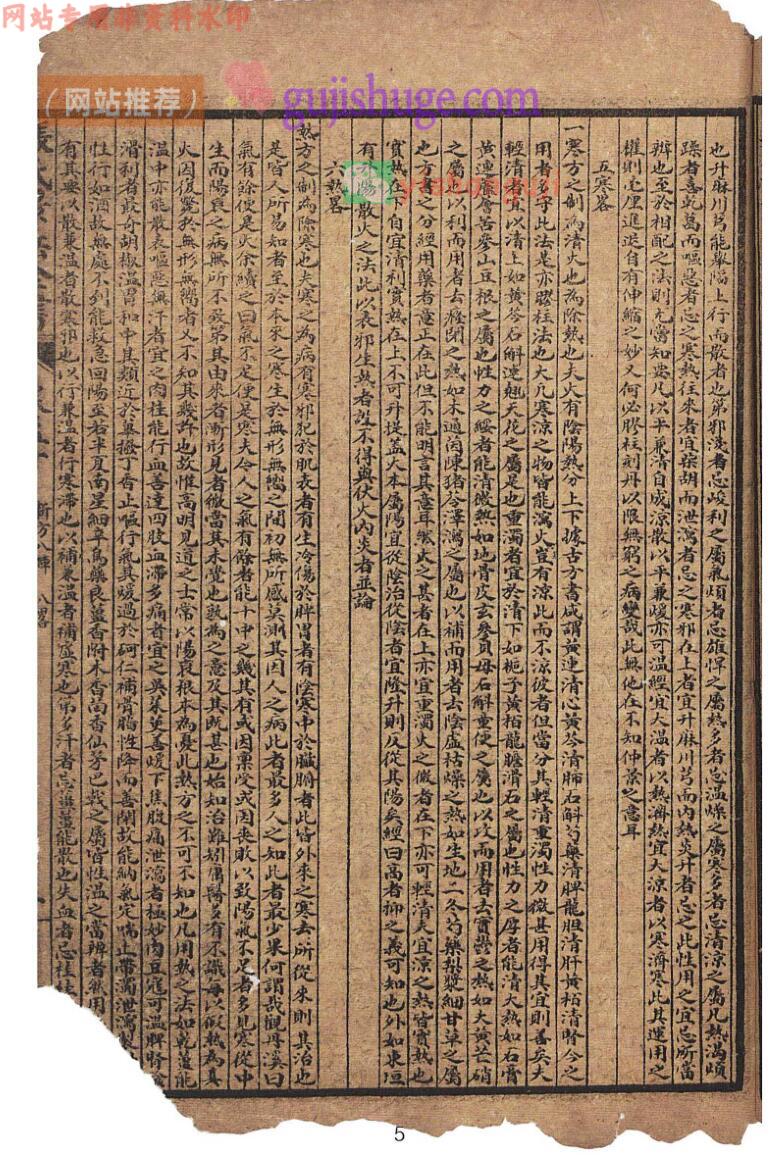 网站专用非资料水印
（网站推荐）
gujishuge.com
也升麻川芎能舉陷上行而散者也第邪淺者忌峻利之屬氣煩者忌雄悍之屬熱多者忌溫燥之屬寒多者忌清涼之屬凡熱渴煩
躁者喜乾葛而嘔惡者忌之寒熱往來者宜柴胡而泄瀉者忌之寒邪在上者宜升麻川芎而內熱炎升者忌之此性用之宜忌所當
辨也至於相配之法則尤當知要凡以平兼清自成涼散以平兼煖亦可溫經宜大溫者以熱濟熱宜大涼者以寒濟寒此其運用之
權則毫厘進退自有伸縮之妙又何必膠柱刻舟以限無窮之病變哉此無他在不知仲景之意耳
五寒畧
一寒方之制為清火也為除熱也夫火有陰陽熱分上下據古方書咸謂黃連清心黃芩清肺石斛芍藥清脾龍膽清肝黃栢清腎今之
用者多守此法是亦膠柱法也大凡寒涼之物皆能瀉火豈有涼此而不涼彼者但當分其輕清重濁性力微甚用得其宜則善矣夫
輕清者宜以清上如黃芩石斛連翹天花之屬是也重濁者宜於清下如梔子黃栢龍膽滑石之屬也性力之厚者能清大熱如石膏
黃連蘆薈苦參山豆根之屬也性力之緩者能清微熱如地骨皮玄參貝母石斛童便之屬也以攻而用者去實欝之熱如大黃芒硝
之屬也以利而用者去癃閉之熱如木通茵陳猪苓澤瀉之屬也以補而用者去陰虛枯燥之熱如生地二冬芍藥梨漿細甘草之屬
也方書之分經用藥者意正在此但不能明言其意耳然火之甚者在上亦宜重濁火之微者在下亦可輕清夫宜涼之熱皆實熱也
實熱在下自宜清利實熱在上不可升提蓋火本屬陽宜從陰治從陰者宜降升則反從其陽矣經曰高者抑之義可知也外如東垣
有升陽散火之法此以表邪生熱者設不得與伏火內炎者並論
六熱畧
熱方之制為除寒也夫寒之為病有寒邪犯於肌表者有生冷傷於脾胃者有陰寒中於臟腑者此皆外來之寒去所從來則其治也
是皆人所易知者至於本來之寒生於無形無嚮之間初無所感莫測其因人之病此者最多人之知此者最少果何謂哉觀丹溪曰
氣有餘便是火余續之曰氣不足便是寒夫今人之氣有餘者能十中之幾其有或因禀受或因喪敗以致陽氣不足者多見寒從中
生而陽衰之病無所不致第其由來者漸形見者微當其未覺也孰為之意及其既甚也始知治難矧庸醫多有不識每以假熱為真
火因復斃於無形無嚮者又不知其幾許也故惟高明見道之士常以陽衰根本為憂此熱方之不可不知也凡用熱之法如乾薑能
溫中亦能散表嘔惡無汗者宜之肉桂能行血善達四肢血滯多痛者宜之吳茱萸善暖下焦腹痛泄瀉者極妙肉豆蔻可溫脾腎
滑利者最奇胡椒溫胃和中其類近於蓽撥丁香止嘔行氣其煖過於砂仁補骨脂性降而善閉故能納氣定喘止帶濁泄瀉
性行如酒故無處不到能救急回陽至若半夏南星細辛烏藥良薑香附木香茴香仙茅巴戟之屬皆性溫之當辨者然用
有其要以散兼溫者散寒邪也以行兼溫者行寒滯也以補兼溫者補虛寒也第多汗者忌薑薑能散也失血者忌桂桂
新方八陣　八畧
5